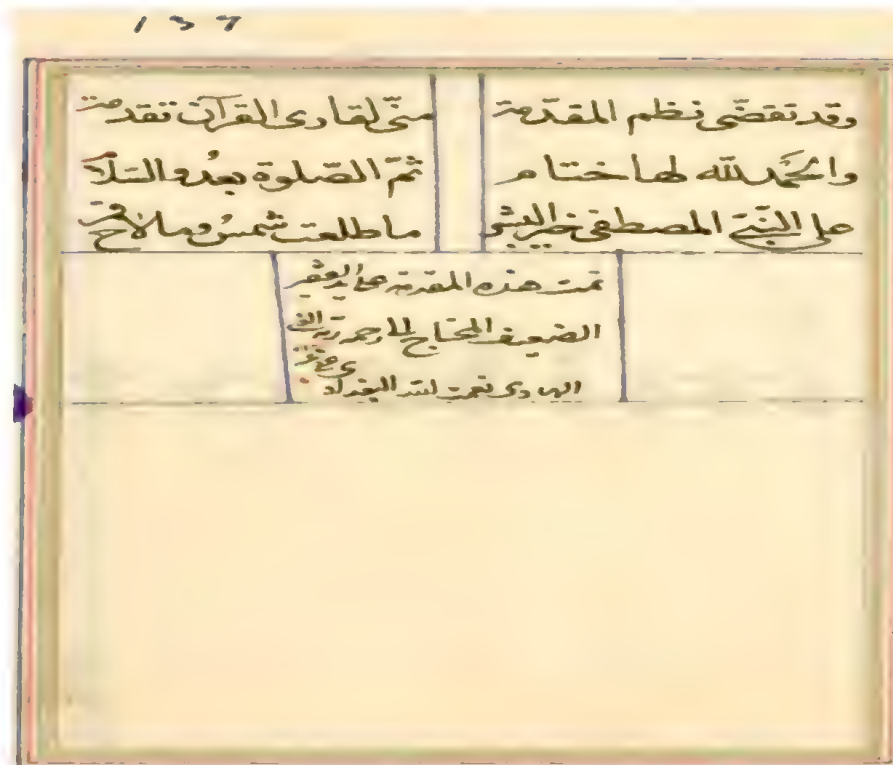 137
وقد تقضّى نظم المقدّمة منّي لقارى القرآن تقدمة
والحَمد لله لها ختام ثمّ الصّلوة بعدُ والسّلآ
على النّبيّ المصطفى خير البشر ما طلعت شمسٌ وما لاح قمر
تمت هذه المقدمة على يد الفقير
الضعيف المحتاج الى رحمة ربه
الهادى نعمت لله البغدادى